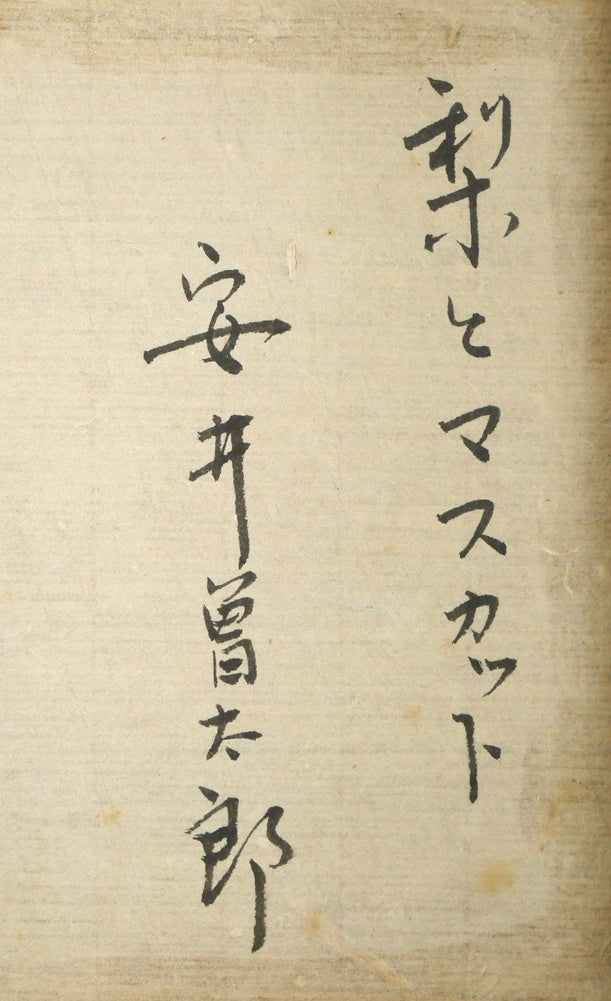 梨とマスカット
安井曾太郎